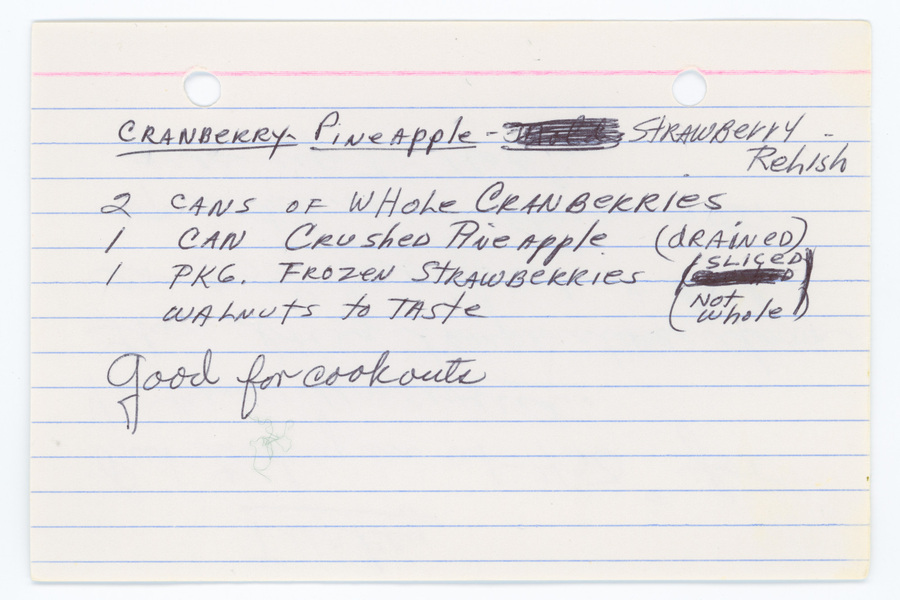 CRANBERRY- Pineapple - STRAWBERRY -
Relish
2 CANS OF WHole CRANBERRIES
1 CAN CRusheD Pineapple (dRAINED)
1 PKG. FROZEN STRAWBERRIES (SLICED)
(Not whole)
WALNUTS to TAste
Good for cookouts